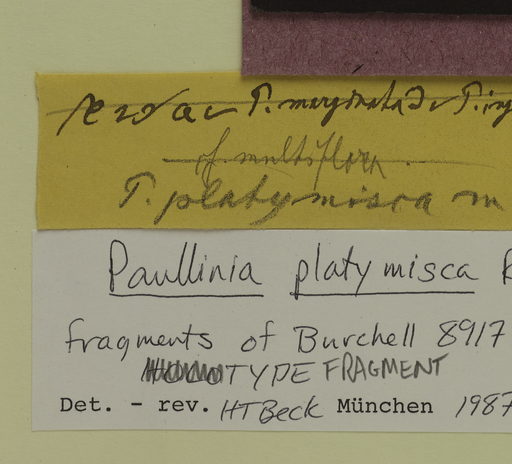 P. marginata
cf. multiflora
P. platymisca m
Paullinia platymisca R
fragments of Burchell 8917
TYPE FRAGMENT
Det. - rev. HTBeck München 1987